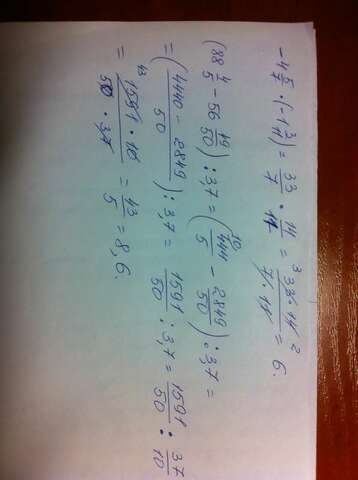 -4 5/7 · (-1 3/11) = 33/7 · 14/11 = (33 · 14)/(7 · 11) = 6.
(88 4/5 - 56 49/50) : 3,7 = (444/5 - 2849/50) : 3,7 =
= (4440 - 2849)/50 : 3,7 = 1591/50 : 3,7 = 1591/50 : 37/10
= (1591 · 10)/(50 · 37) = 43/5 = 8,6.